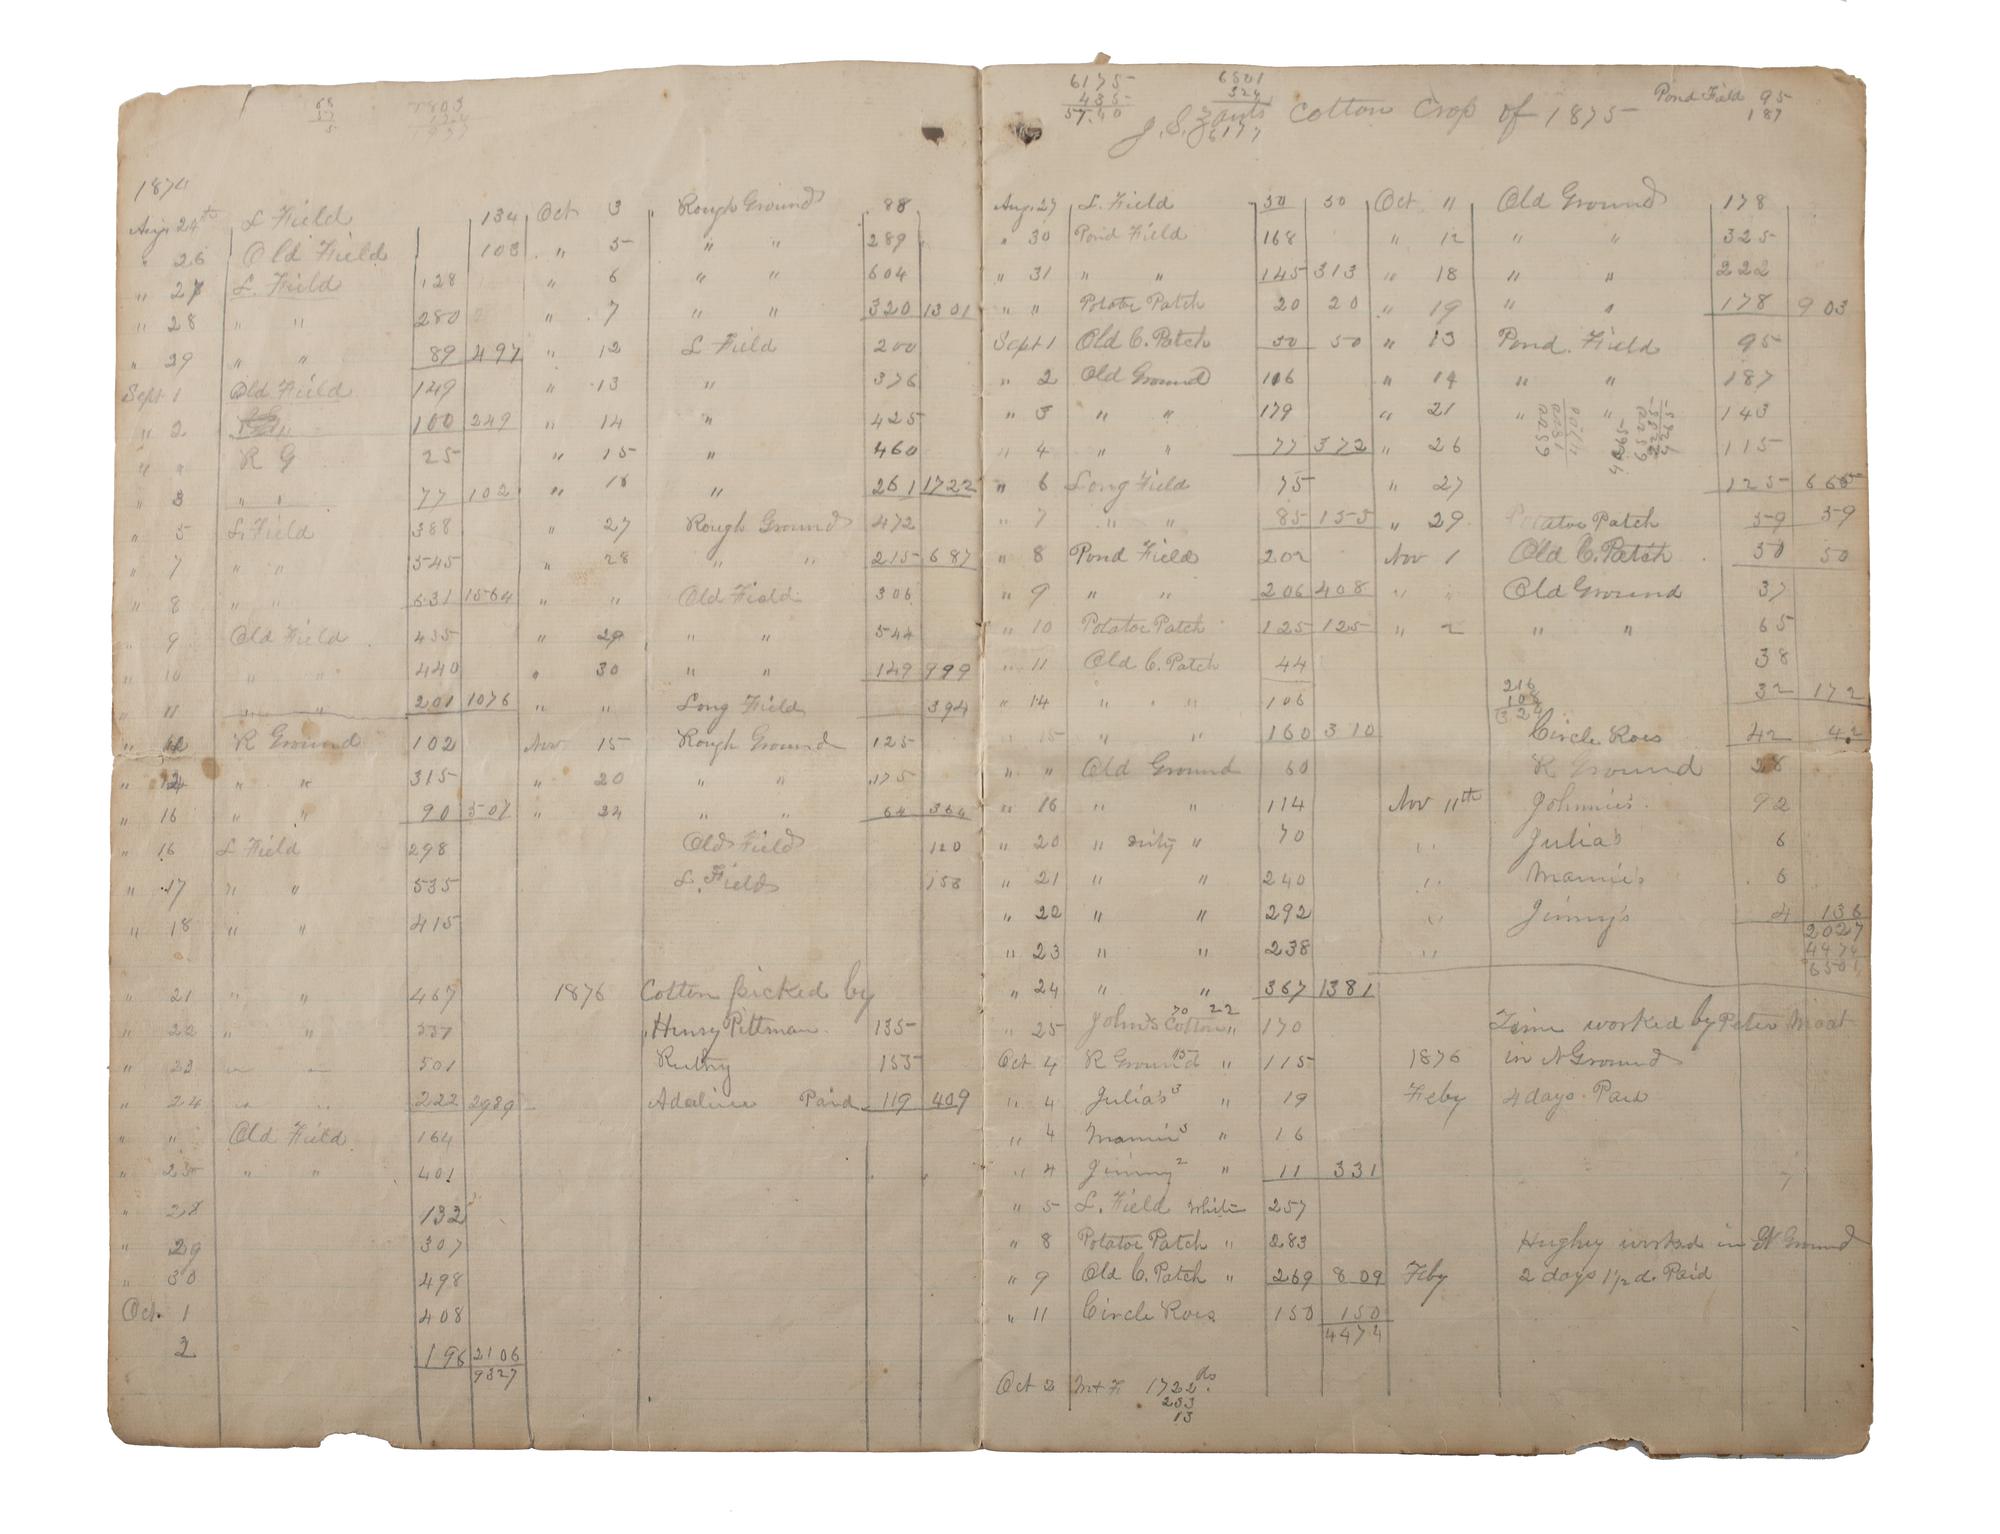 68
5
1874
Aug 24th L Field 134
" 26 Old Field 103
" 27 L. Field 128
" 28 " " 280
" 29 " " 89 497
Sept 1 Old Field 149
" 2 100 249
" " R G 25
" 3 " " 77 102
" 5 L. Field 388
" 7 " " 545
" 8 " " 631 1564
" 9 Old Field 435
" 10 " " 440
" 11 " " 201 1076
" R Ground 102
" " " 315
" 16 " " 90 507
" 16 L Field 298
" 17 " " 535
" 18 " " 415
" 21 " " 467
" 22 " " 551
" 23 " " 501
" 24 " " 222 2989
" " Old Field 164
" 25 " " 401
" 28 132
" 29 307
" 30 498
Oct. 1 408
2 196 2106
9327
Oct 3 Rough Ground 88
" 5 " " 289
" 6 " " 604
" 7 " " 320 1301
" 12 L Field 200
" 13 " 376
" 14 " 425
" 15 " 460
" 16 " 261 1722
" 27 Rough Ground 472
" 28 " " 215 687
" " Old Field 306
" 29 " " 544
" 30 " " 149 999
" " Long Field 394
Nov 15 Rough Ground 125
" 20 " " 175
" 24 " " 64 364
Old Field 120
L. Field 158
1876 Cotton picked by
" Henry Pittman 135
155
Adaline Paid 119 409
6175
435
57.40
6501
324
6177
J. S. Cotton Crop of 1875
Pond Field 95
187
Aug. 27 L. Field 50 50
" 30 Pond Field 168
" 31 " " 145 313
" " Potatoe Patch 20 20
Sept 1 Old C. Patch 50 50
" 2 Old Ground 116
" 3 " " 179
" 4 " " 77 372
" 6 Long Field 75
" 7 " " 85 155
" 8 Pond Field 202
" 9 " " 206 408
" 10 Potatoe Patch 125 125
" 11 Old C. Patch 44
" 14 " " 106
" 15 " " 160 310
" " Old Ground 60
" 16 " " 114
" 20 " dirty " 70
" 21 " " 240
" 22 " " 292
" 23 " " 238
" 24 " " 367 1381
" 25 John's 70 Cotton 22 " 170
Oct 4 R Ground 15 " 115
" 4 Julia's 3 " 19
" 4 Mamie 3 " 16
" 4 Jimmy 2 " 11 331
" 5 L. Field White 257
" 8 Potatoe Patch " 283
" 9 Old C. Patch " 269 809
" 11 Circle Rows 150 150
4474
Oct 2 1722
253
13
Oct 11 Old Ground 178
" 12 " " 325
" 18 " " 222
" 19 " " 178 903
" 13 Pond Field 95
" 14 " " 187
" 21 " " 143
" 26 115
" 27 125 665
" 29 Potatoe Patch 59 59
Nov 1 Old C. Patch 50 50
" " Old Ground 37
" 2 " " 65
38
32 172
216
108
324
Circle Rows 42 42
R Ground 28
Nov 11th Johnnie's 92
" Julia's 6
" Mamie's 6
" Jimmy's 4 136
" 2027
4474
6501
Time worked by Peter
1876 in N Ground
Feby 4 days Paid
Hughey worked in N Ground
Feby 2 days 1 1/2 d. Paid